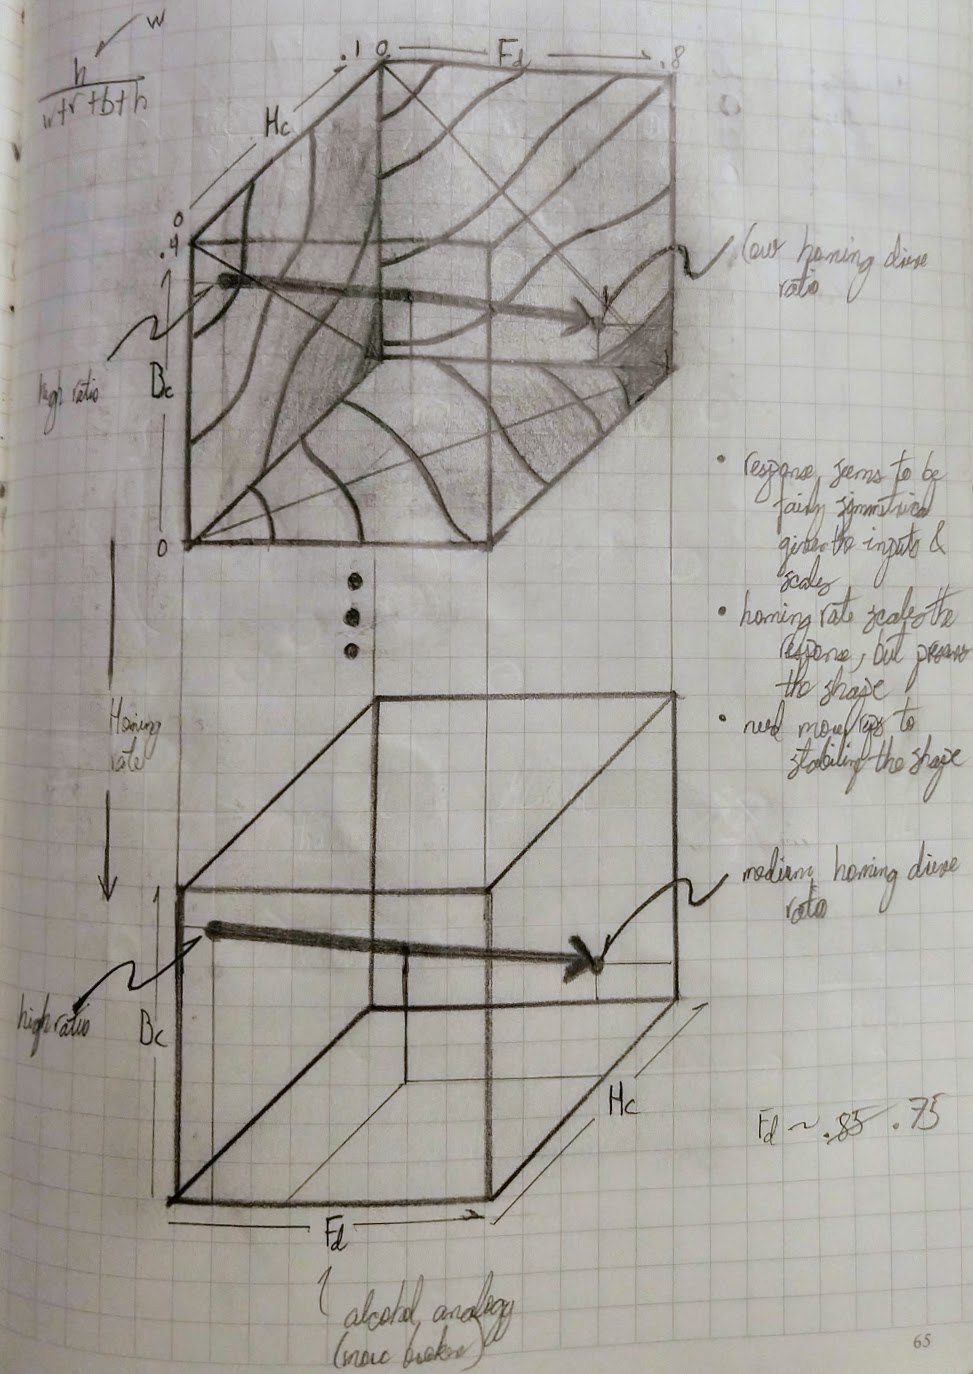 w
h
w+r+b+h
.1 0 Fd .8
Hc
0
.4
low homing drive
ratio
high ratio
Bc
0
• response seems to be
fairly symmetrical
given the inputs &
scales
• homing rate scales the
response, but preserves
the shape
• need more reps to
stabilize the shape
Homing
rate
medium homing drive
ratio
high ratio
Bc
Hc
Fd ~ .85 .75
Fd
alcohol analogy
(more broken)
65